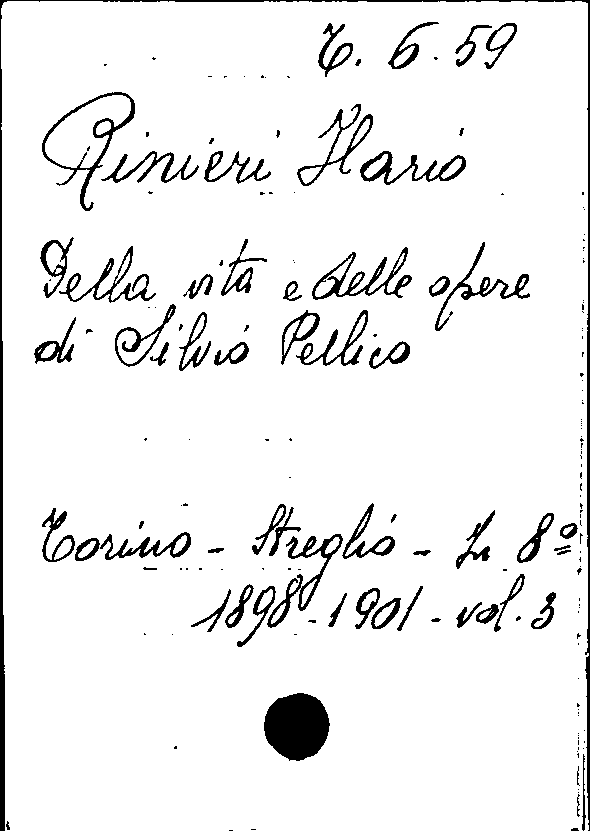 T. 6. 59
Rinieri Ilario
Della vita e delle opere
di Silvio Pellico
Torino - Streglio - In 8º
1898-1901 - vol. 3